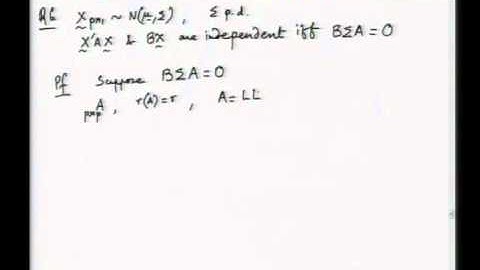 R6 X̰ p×1 ~ N(μ̰, Σ), Σ p.d.
X̰'AX̰ & BX̰ are independent iff BΣA = 0
Pf Suppose BΣA = 0
A p×p, r(A)=r, A = LL